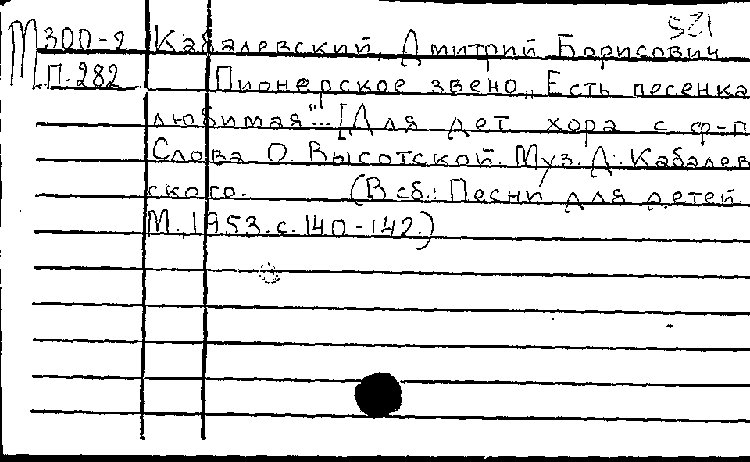 125
М 300-2 Кабалевский, Дмитрий Борисович
П-282 Пионерское звено „Есть песенка
любимая"... [Для дет. хора с ф-п
Слова О. Высотской. Муз. Д. Кабалев
ского. (В сб.: Песни для детей
М., 1953. с. 140-142.)